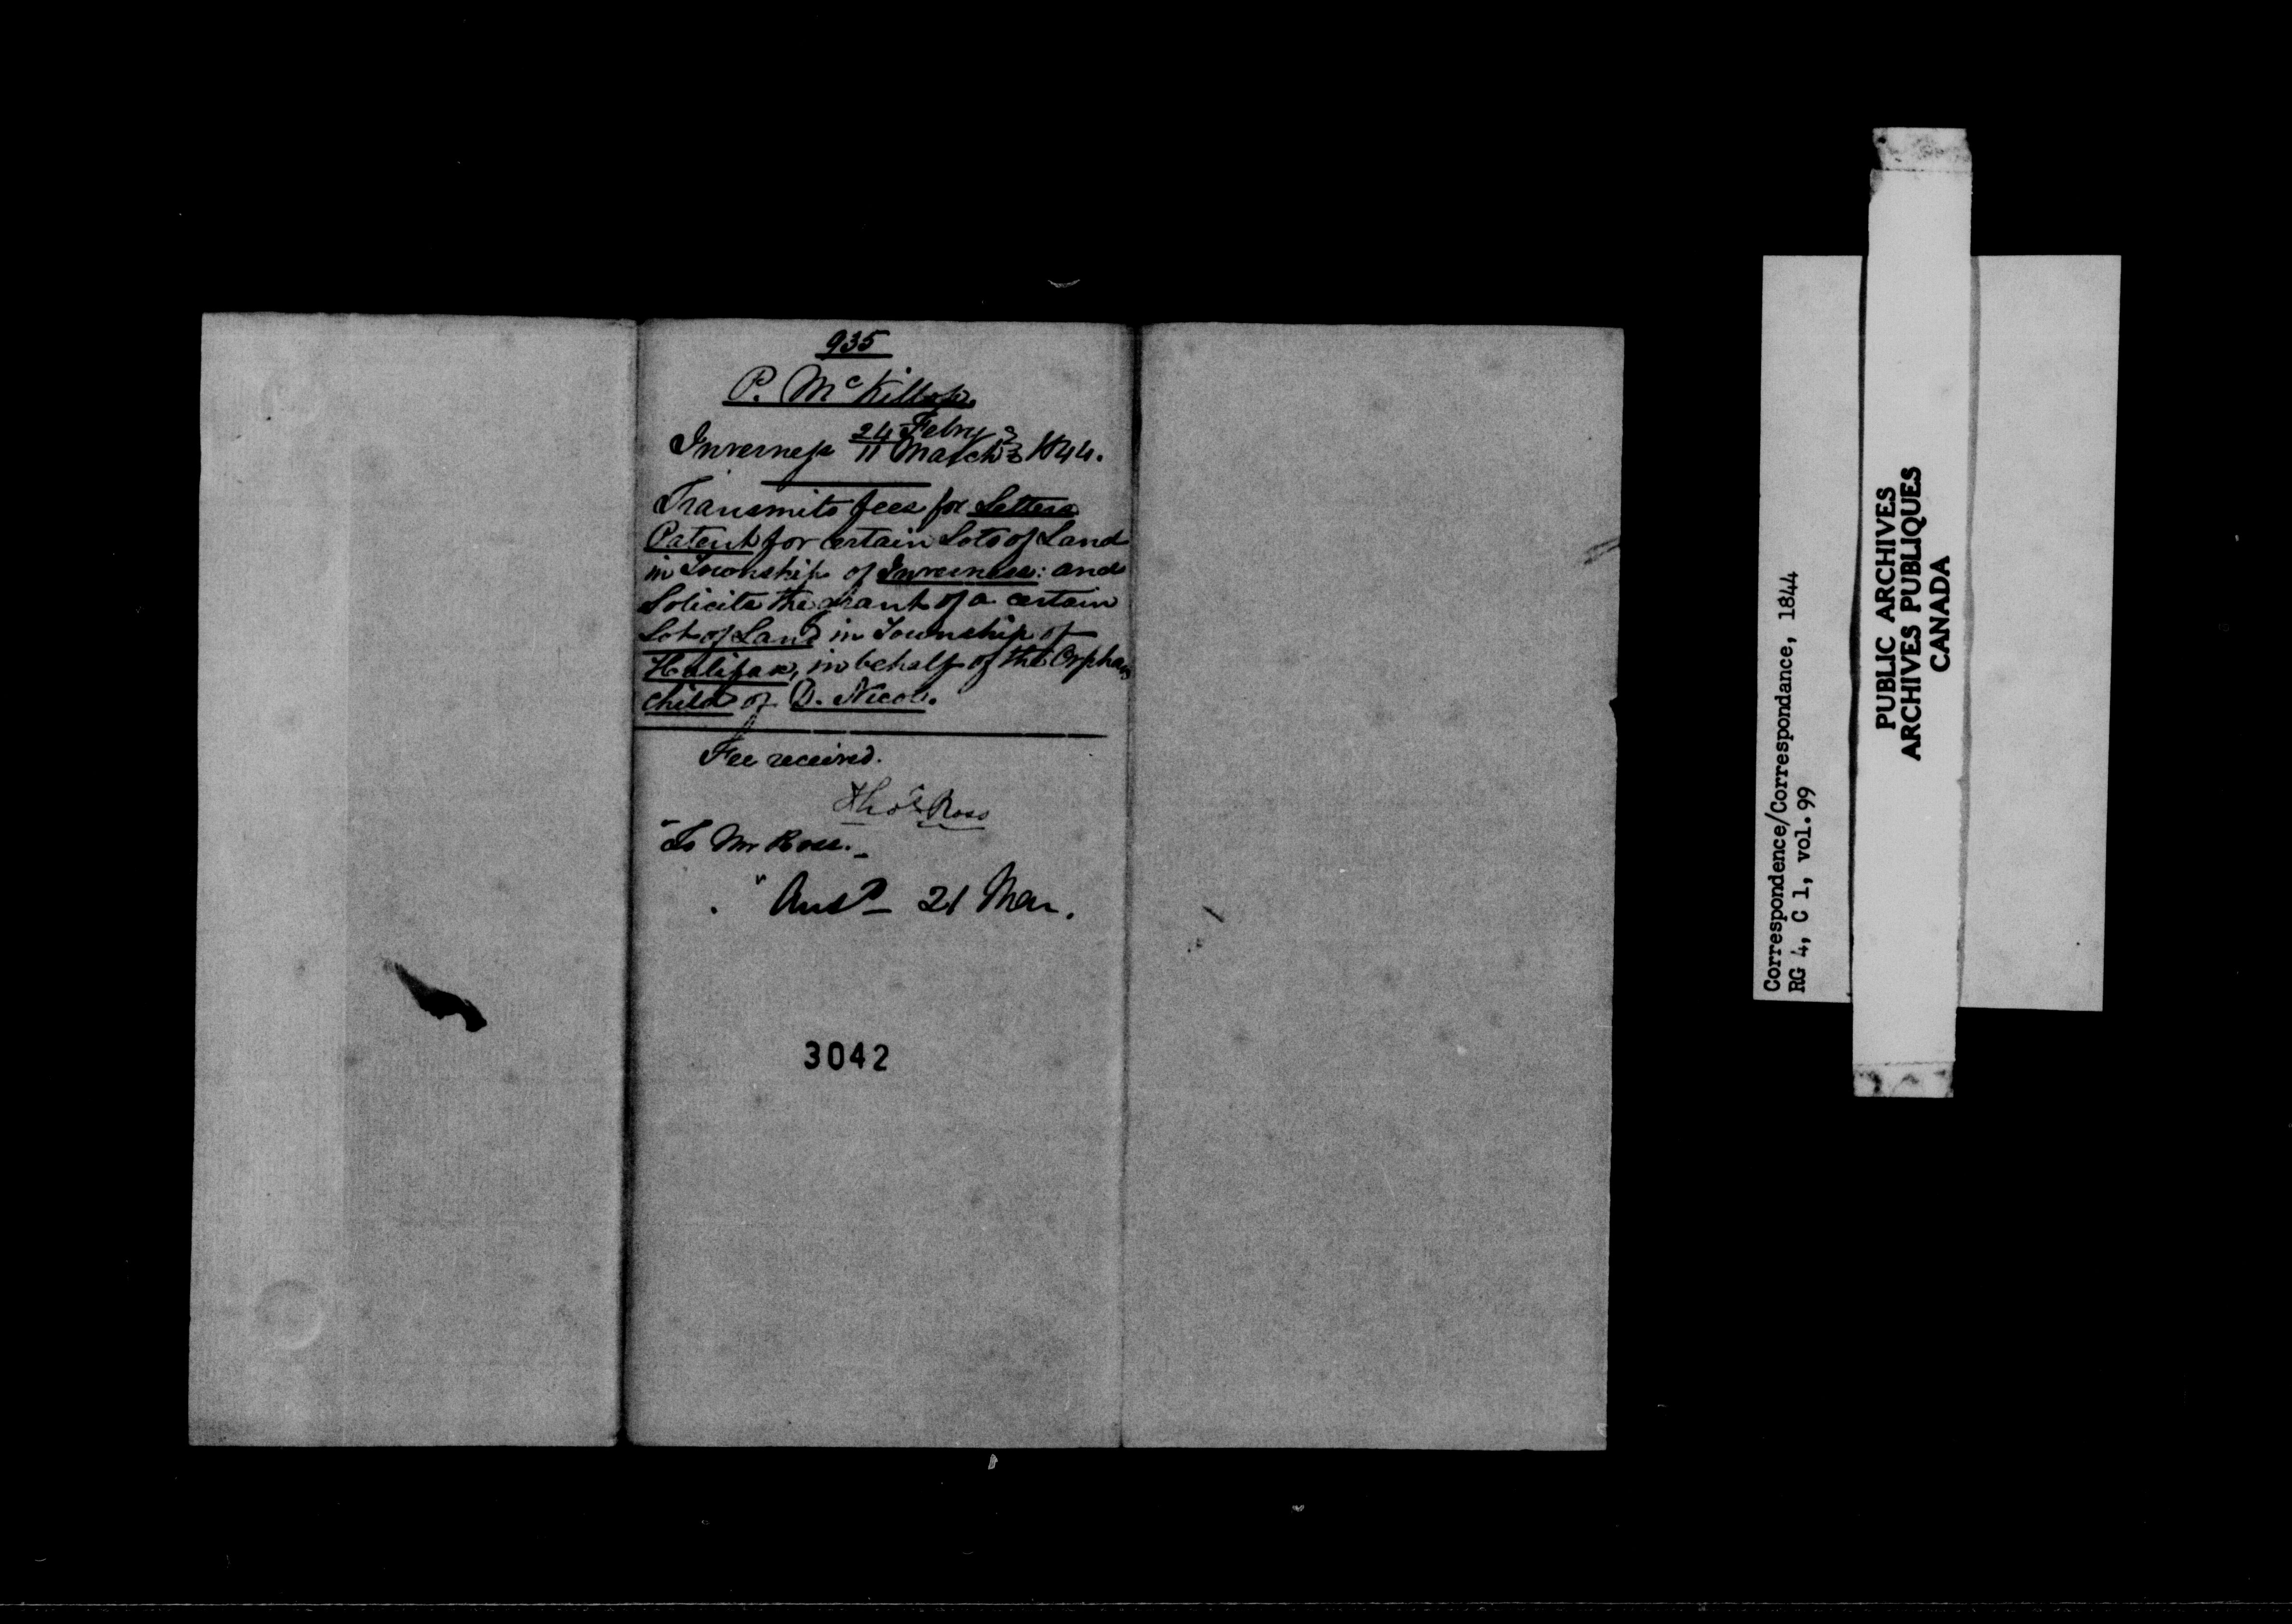 935
P. McKillop.
24 Febry
Inverness 11 March 1844.
Transmits fees for Letters
Patent for certain Lots of Land
in Township of Inverness: and
Solicits the grant of a certain
Lot of Land in Township of
Halifax, in behalf of the Orphan
child of D. Nicol.
Fee received.
Thos Ross
"To Mr Ross.
" Ansd - 21 Mar.
3042
Correspondence/Correspondance, 1844
RG 4, C 1, vol. 99
PUBLIC ARCHIVES
ARCHIVES PUBLIQUES
CANADA